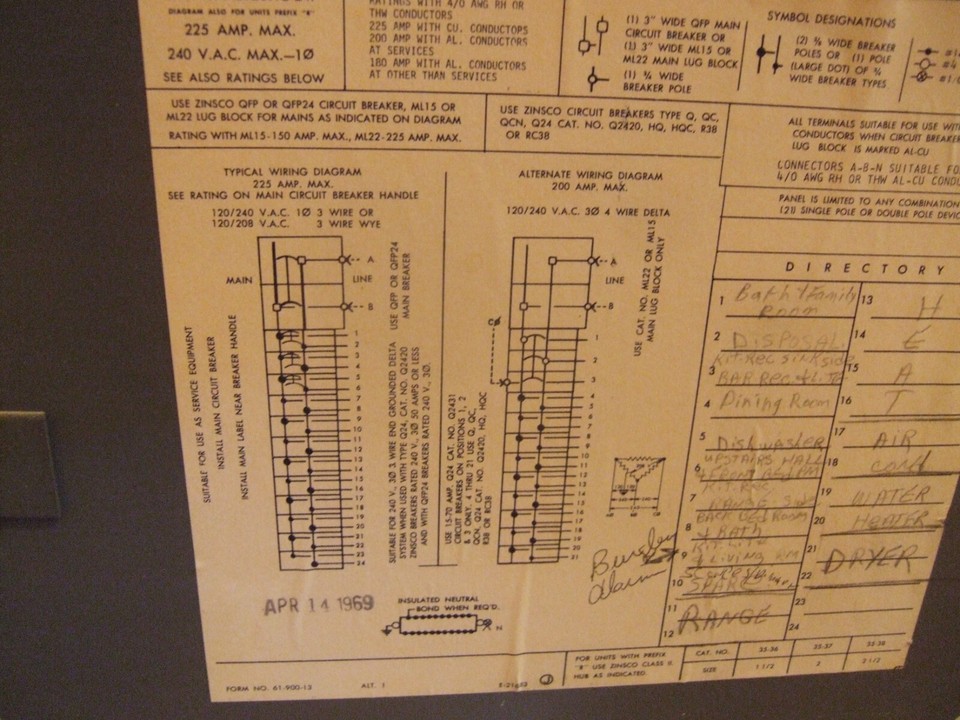 DIAGRAM ALSO FOR UNITS PREFIX "R"
225 AMP. MAX.
240 V.A.C. MAX.—1Ø
SEE ALSO RATINGS BELOW
RATINGS WITH 4/0 AWG RH OR
THW CONDUCTORS
225 AMP WITH CU. CONDUCTORS
200 AMP WITH AL. CONDUCTORS
AT SERVICES
180 AMP WITH AL. CONDUCTORS
AT OTHER THAN SERVICES
(1) 3" WIDE QFP MAIN
CIRCUIT BREAKER OR
(1) 3" WIDE ML15 OR
ML22 MAIN LUG BLOCK
(1) ¾ WIDE
BREAKER POLE
SYMBOL DESIGNATIONS
WIDE BREAKER
POLES OR (1) POLE
(LARGE DOT) OF ¾
WIDE BREAKER TYPES
USE ZINSCO QFP OR QFP24 CIRCUIT BREAKER, ML15 OR
ML22 LUG BLOCK FOR MAINS AS INDICATED ON DIAGRAM
RATING WITH ML15-150 AMP. MAX., ML22-225 AMP. MAX.
USE ZINSCO CIRCUIT BREAKERS TYPE Q, QC,
QCN, Q24 CAT. NO. Q2420, HQ, HQC, R38
OR RC38
ALL TERMINALS SUITABLE FOR USE WITH
CONDUCTORS WHEN CIRCUIT BREAKER
LUG BLOCK IS MARKED AL-CU
CONNECTORS A-B-N SUITABLE FOR
4/0 AWG RH OR THW AL-CU
PANEL IS LIMITED TO ANY COMBINATION
(21) SINGLE POLE OR DOUBLE POLE
TYPICAL WIRING DIAGRAM
225 AMP. MAX.
SEE RATING ON MAIN CIRCUIT BREAKER HANDLE
120/240 V.A.C. 1Ø 3 WIRE OR
120/208 V.A.C. 3 WIRE WYE
MAIN
LINE
A
B
SUITABLE FOR USE AS SERVICE EQUIPMENT
INSTALL MAIN CIRCUIT BREAKER
INSTALL MAIN LABEL NEAR BREAKER HANDLE
USE QFP OR QFP24
MAIN BREAKER
SUITABLE FOR 240 V., 3Ø 3 WIRE END GROUNDED DELTA
SYSTEM WHEN USED WITH TYPE Q24, CAT. NO. Q2420
ZINSCO BREAKERS RATED 240 V., 3Ø 50 AMPS OR LESS
AND WITH QFP24 BREAKERS RATED 240 V., 3Ø.
ALTERNATE WIRING DIAGRAM
200 AMP. MAX.
120/240 V.A.C. 3Ø 4 WIRE DELTA
A
LINE
B
C
USE CAT. NO. ML22 OR ML15
MAIN LUG BLOCK ONLY
USE 15-70 AMP. Q24 CAT. NO. Q2431
CIRCUIT BREAKERS ON POSITIONS 1, 2
& 3 ONLY. 4 THRU 21 USE Q, QC,
QCN, Q24 CAT. NO. Q2420, HQ, HQC
R38 OR RC38
DIRECTORY
1 Bath & Family
Room
2 DISPOSAL
KIT. REC. SINK side
3 BAR REC & LITE
4 Dining Room
5 DISHWASHER
UPSTAIRS HALL
6
7
8
& BATH
9 & LIVING RM
10 SPARE
11
RANGE
12
13 H
14 E
15 A
16 T
17 AIR
18 COND
19 WATER
20 HEATER
21 DRYER
22
23
24
Burglar
Alarm
APR 14 1969
INSULATED NEUTRAL
BOND WHEN REQ'D.
N
FOR UNITS WITH PREFIX
"R" USE ZINSCO CLASS II.
HUB AS INDICATED.
CAT. NO. 35-36 35-37 35-38
SIZE 1 1/2 2 2 1/2
FORM NO. 61-900-13 ALT. 1